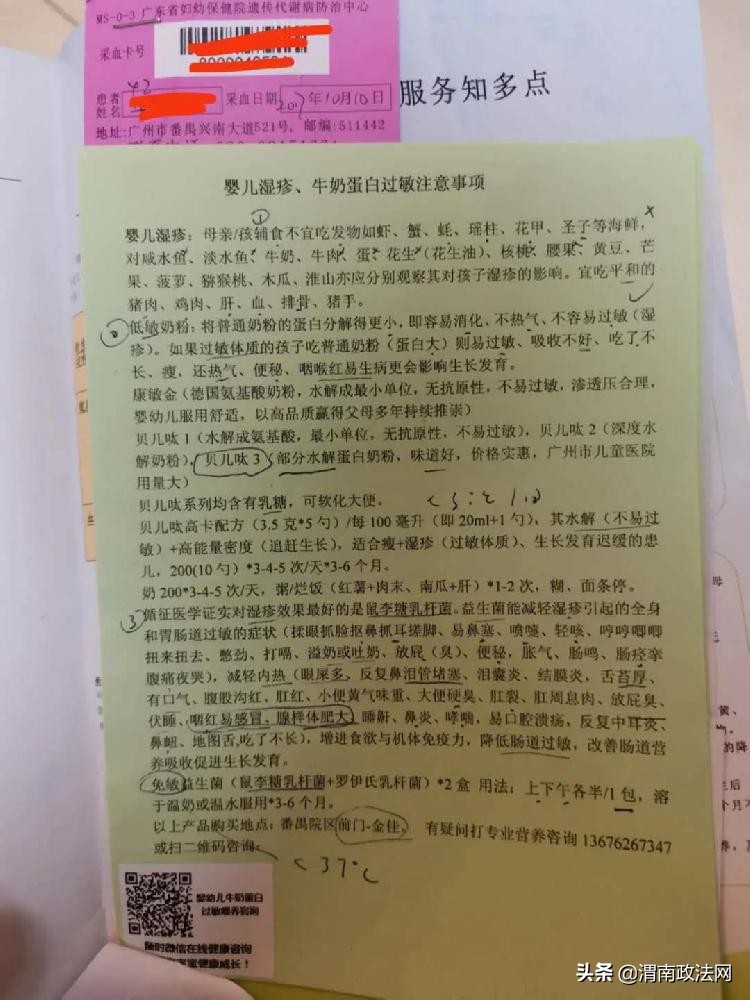 MS-0-3 广东省妇幼保健院遗传代谢病防治中心
采血卡号
患者
姓名
采血日期 2017年10月10日
地址:广州市番禺兴南大道521号, 邮编:511442
服务知多点
婴儿湿疹、牛奶蛋白过敏注意事项
①
婴儿湿疹：母亲/孩辅食不宜吃发物如虾、蟹、蚝、瑶柱、花甲、圣子等海鲜，
对咸水鱼、淡水鱼、牛奶、牛肉、蛋、花生（花生油）、核桃、腰果、黄豆、芒
果、菠萝、猕猴桃、木瓜、淮山亦应分别观察其对孩子湿疹的影响。宜吃平和的
猪肉、鸡肉、肝、血、排骨、猪手。
②低敏奶粉：将普通奶粉的蛋白分解得更小，即容易消化、不热气、不容易过敏（湿
疹）。如果过敏体质的孩子吃普通奶粉（蛋白大）则易过敏、吸收不好、吃了不
长、瘦，还热气、便秘、咽喉红易生病更会影响生长发育。
康敏金（德国氨基酸奶粉，水解成最小单位，无抗原性，不易过敏，渗透压合理，
婴幼儿服用舒适，以高品质赢得父母多年持续推崇）
贝儿呔 1（水解成氨基酸，最小单位，无抗原性，不易过敏），贝儿呔 2（深度水
解奶粉），贝儿呔 3（部分水解蛋白奶粉，味道好，价格实惠，广州市儿童医院
用量大）
贝儿呔系列均含有乳糖，可软化大便。
贝儿呔高卡配方（3.5 克*5 勺）/每 100 毫升（即 20ml+1 勺），其水解（不易过
敏）+高能量密度（追赶生长），适合瘦+湿疹（过敏体质）、生长发育迟缓的患
儿，200(10 勺）*3-4-5 次/天*3-6 个月。
奶 200*3-4-5 次/天，粥/烂饭（红薯+肉末、南瓜+肝）*1-2 次，糊、面条停。
③循征医学证实对湿疹效果最好的是鼠李糖乳杆菌。益生菌能减轻湿疹引起的全身
和胃肠道过敏的症状（揉眼抓脸抠鼻抓耳搓脚、易鼻塞、喷嚏、轻咳、哼哼唧唧
扭来扭去、憋劲、打嗝、溢奶或吐奶、放屁（臭）、便秘，胀气、肠鸣、肠痉挛
腹痛夜哭），减轻内热（眼屎多，反复鼻泪管堵塞、泪囊炎、结膜炎，舌苔厚、
有口气、腹股沟红、肛红、小便黄气味重、大便硬臭、肛裂、肛周息肉、放屁臭、
伏睡、咽红易感冒、腺样体肥大、睡鼾、鼻炎、哮喘，易口腔溃疡，反复中耳炎、
鼻衄、地图舌,吃了不长），增进食欲与机体免疫力，降低肠道过敏，改善肠道营
养吸收促进生长发育。
免敏益生菌（鼠李糖乳杆菌+罗伊氏乳杆菌）*2 盒 用法：上下午各半/1 包，溶
于温奶或温水服用*3-6 个月。
以上产品购买地点：番禺院区前门-金佳。 有疑问打专业营养咨询 13676267347
或扫二维码咨询：
<37℃
婴幼儿牛奶蛋白
过敏喂养咨询
随时微信在线健康咨询
宝宝健康成长！
头条 @渭南政法网